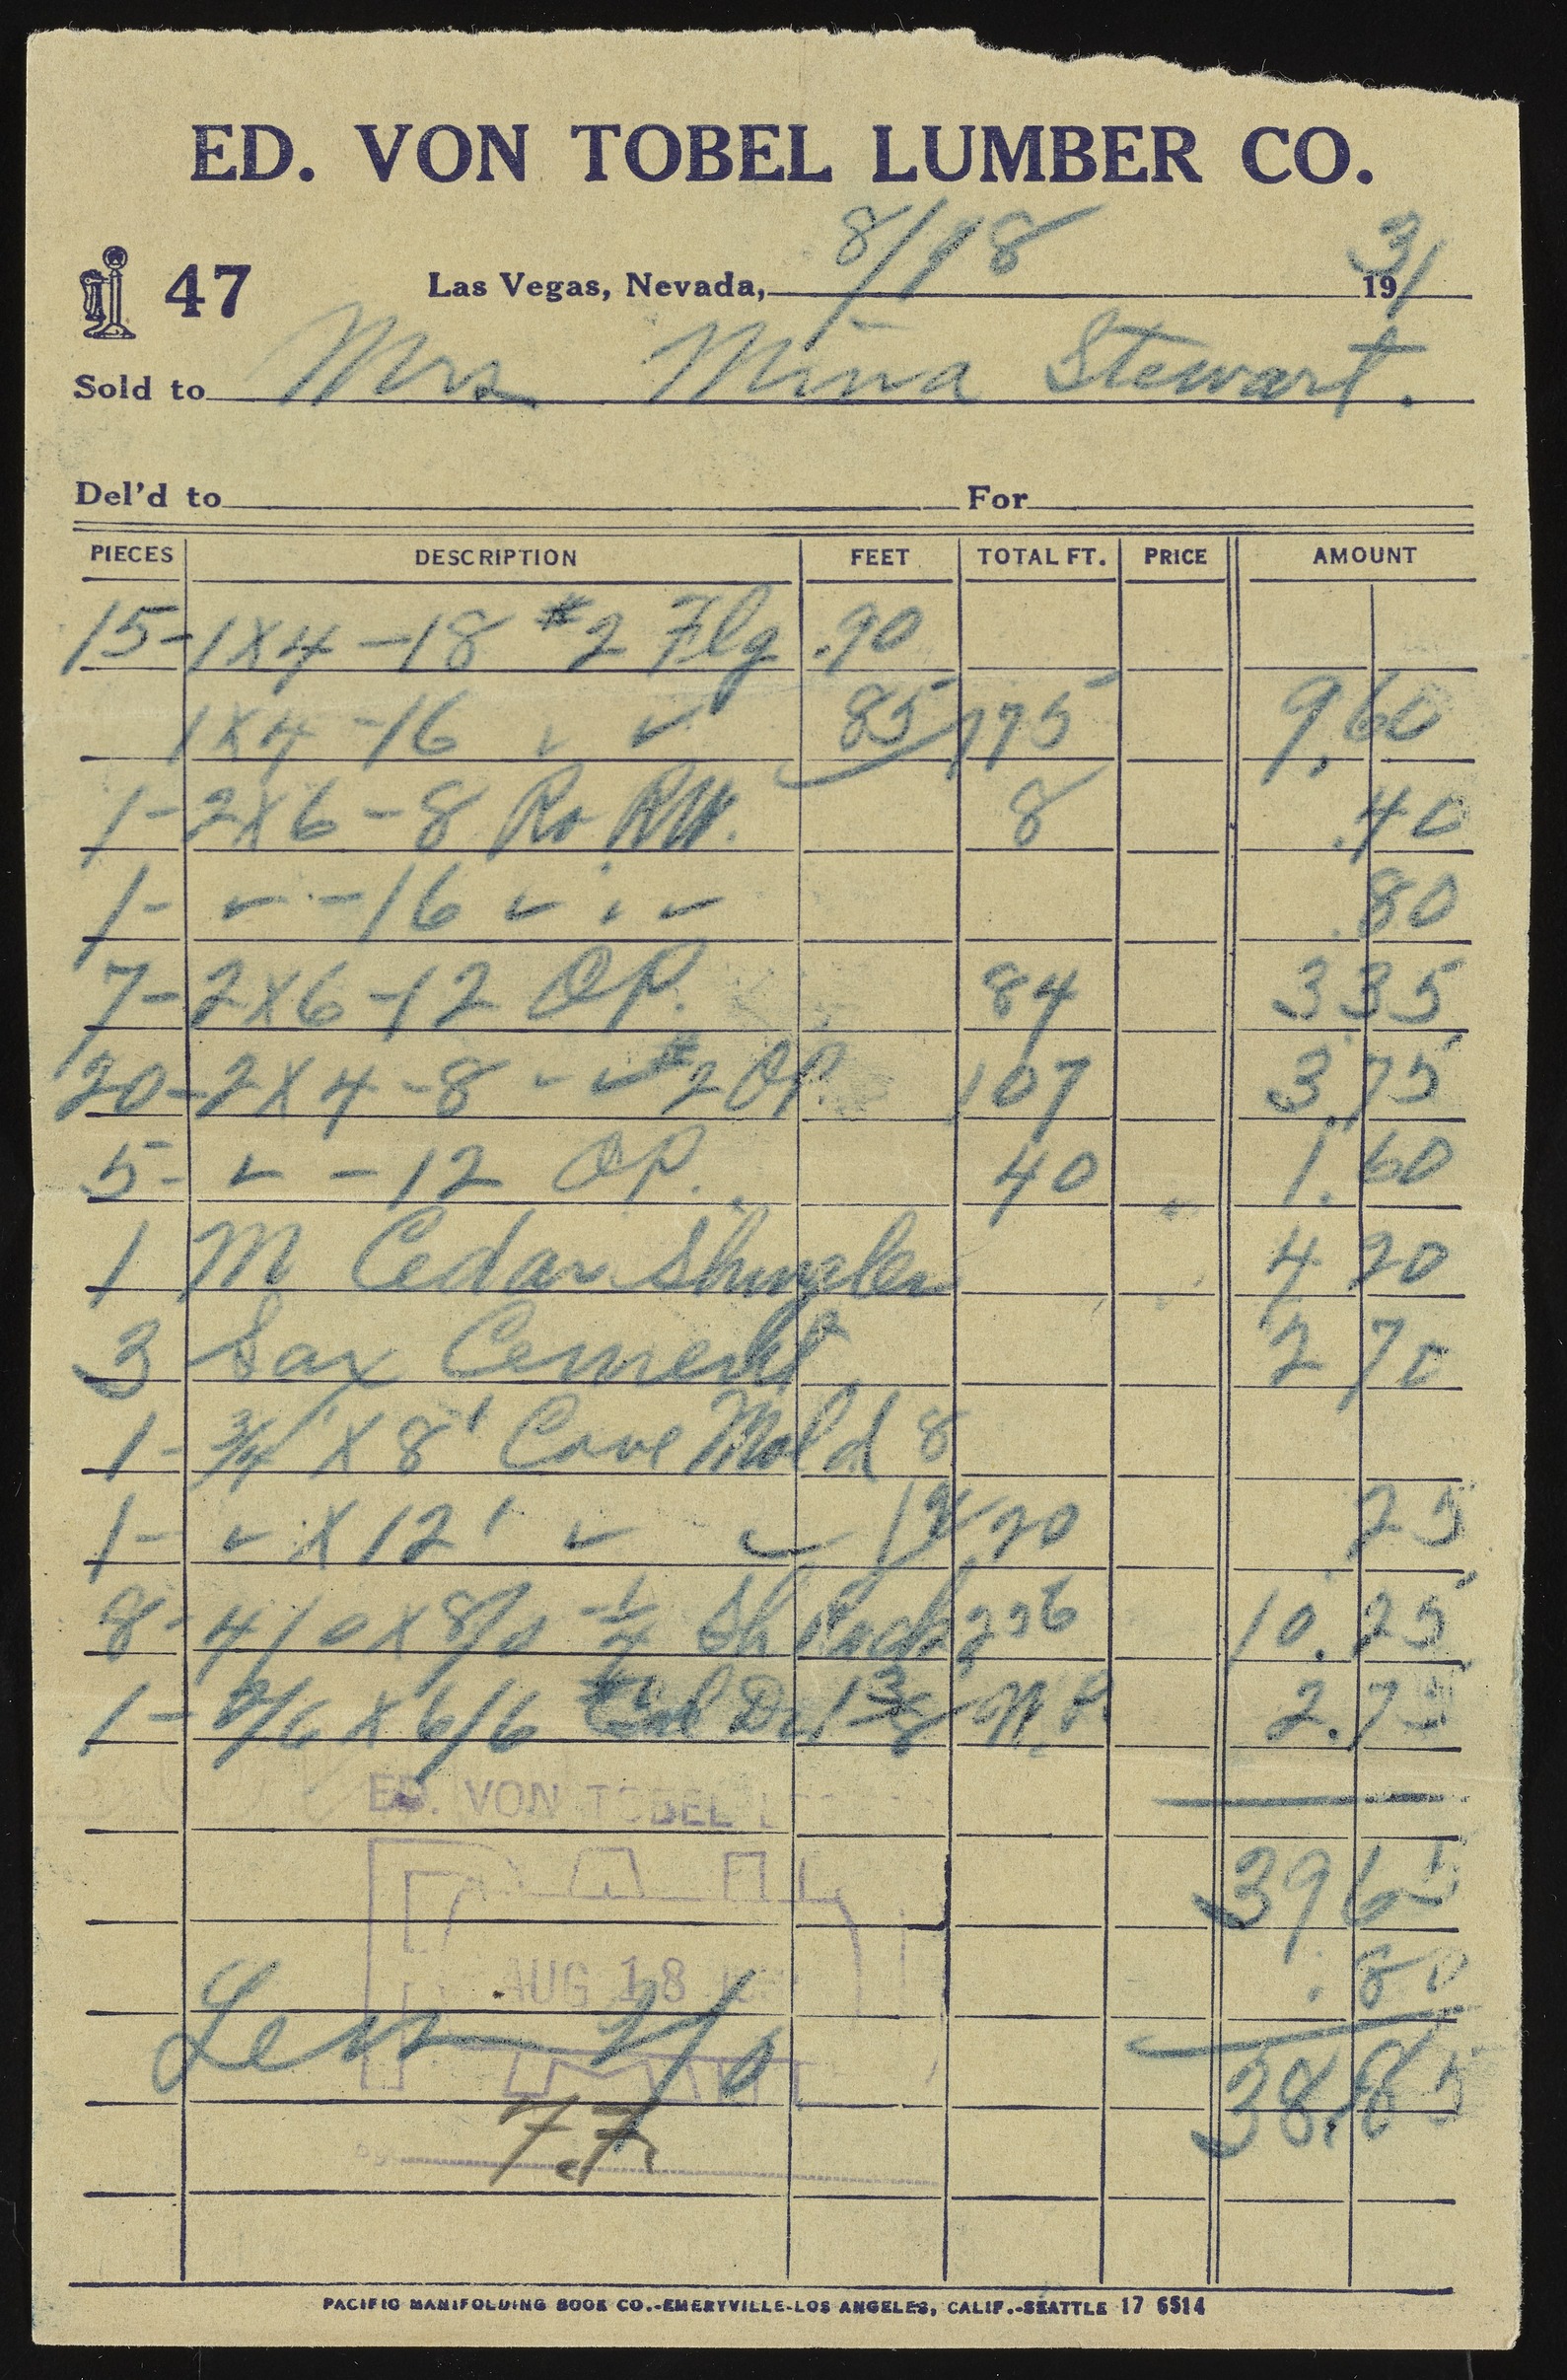 ED. VON TOBEL LUMBER CO.
47 Las Vegas, Nevada, 8/18 1931
Sold to Mrs Mina Stewart.
Del'd to For
PIECES DESCRIPTION FEET TOTAL FT. PRICE AMOUNT
15- 1X4 -18 #2 Flg .90
1X4 -16 " " 85 175 9.60
1- 2X6 -8 Ro RW. 8 .40
1- " -16 " " " .80
7- 2X6 -12 OP. 84 3 35
20- 2X4 -8 - " #2 OP 107 3.75
5- " -12 OP. 40 1.60
1 M Cedar Shingles 4 20
3 Sax Cement 2 70
1- 3/4 X 8' Cove Mold 8
1- " X 12' " " 12 20 25
8- 4/0 X 8/0 - 1/4 Sh Rock 256 10.25
1- 2/6 X 6/6 1 3/8 W.P. 2.75
ED. VON TOBEL
39 65
PAID
AUG 18
.80
Less 2%
38.85
By
PACIFIC MANIFOLDING BOOK CO.-EMERYVILLE-LOS ANGELES, CALIF.-SEATTLE 17 6514